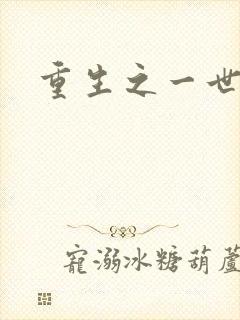 重生之一世
寵溺冰糖葫蘆